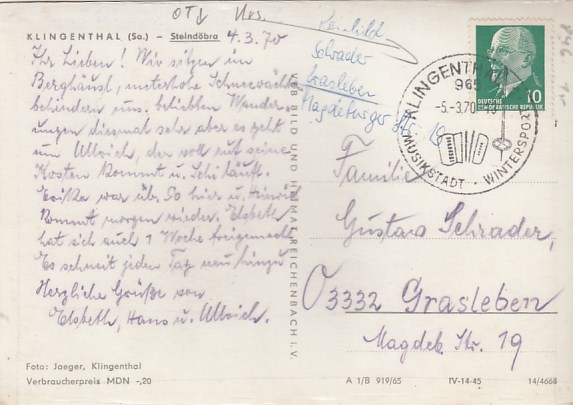 OTL Hrs.
KLINGENTHAL (Sa.) - Steindöbra 4.3.70
Ihr Lieben! Wir sitzen im
Berghäusl, meterhohe Schneewächten
behindern uns. beliebten Wander-
ungen diesmal sehr aber es geht
um Ulbrich, der soll auf seine
Kosten kommt u. Schi läuft.
war üb. So hier u. Heinrich
kommt morgen wieder. Elsbeth
hat sich auch 1 Woche freigemacht
Es schneit jeden Tag neu hinzu
Herzliche Grüße von
Elsbeth, Hans u. Ulbrich.
Foto: Jaeger, Klingenthal
Verbraucherpreis MDN -,20
VEB BILD UND HEIMAT REICHENBACH I. V.
Schrader
Grasleben
Magdeburger Str. 19
KLINGENTHAL
965
-5.-3.70
MUSIKSTADT · WINTERSPORT
DEUTSCHE
DEMOKRATISCHE REPUBLIK
10
Familie
Gustav Schrader,
03332 Grasleben
Magdeb. Str. 19
A 1/B 919/65 IV-14-45 14/4668